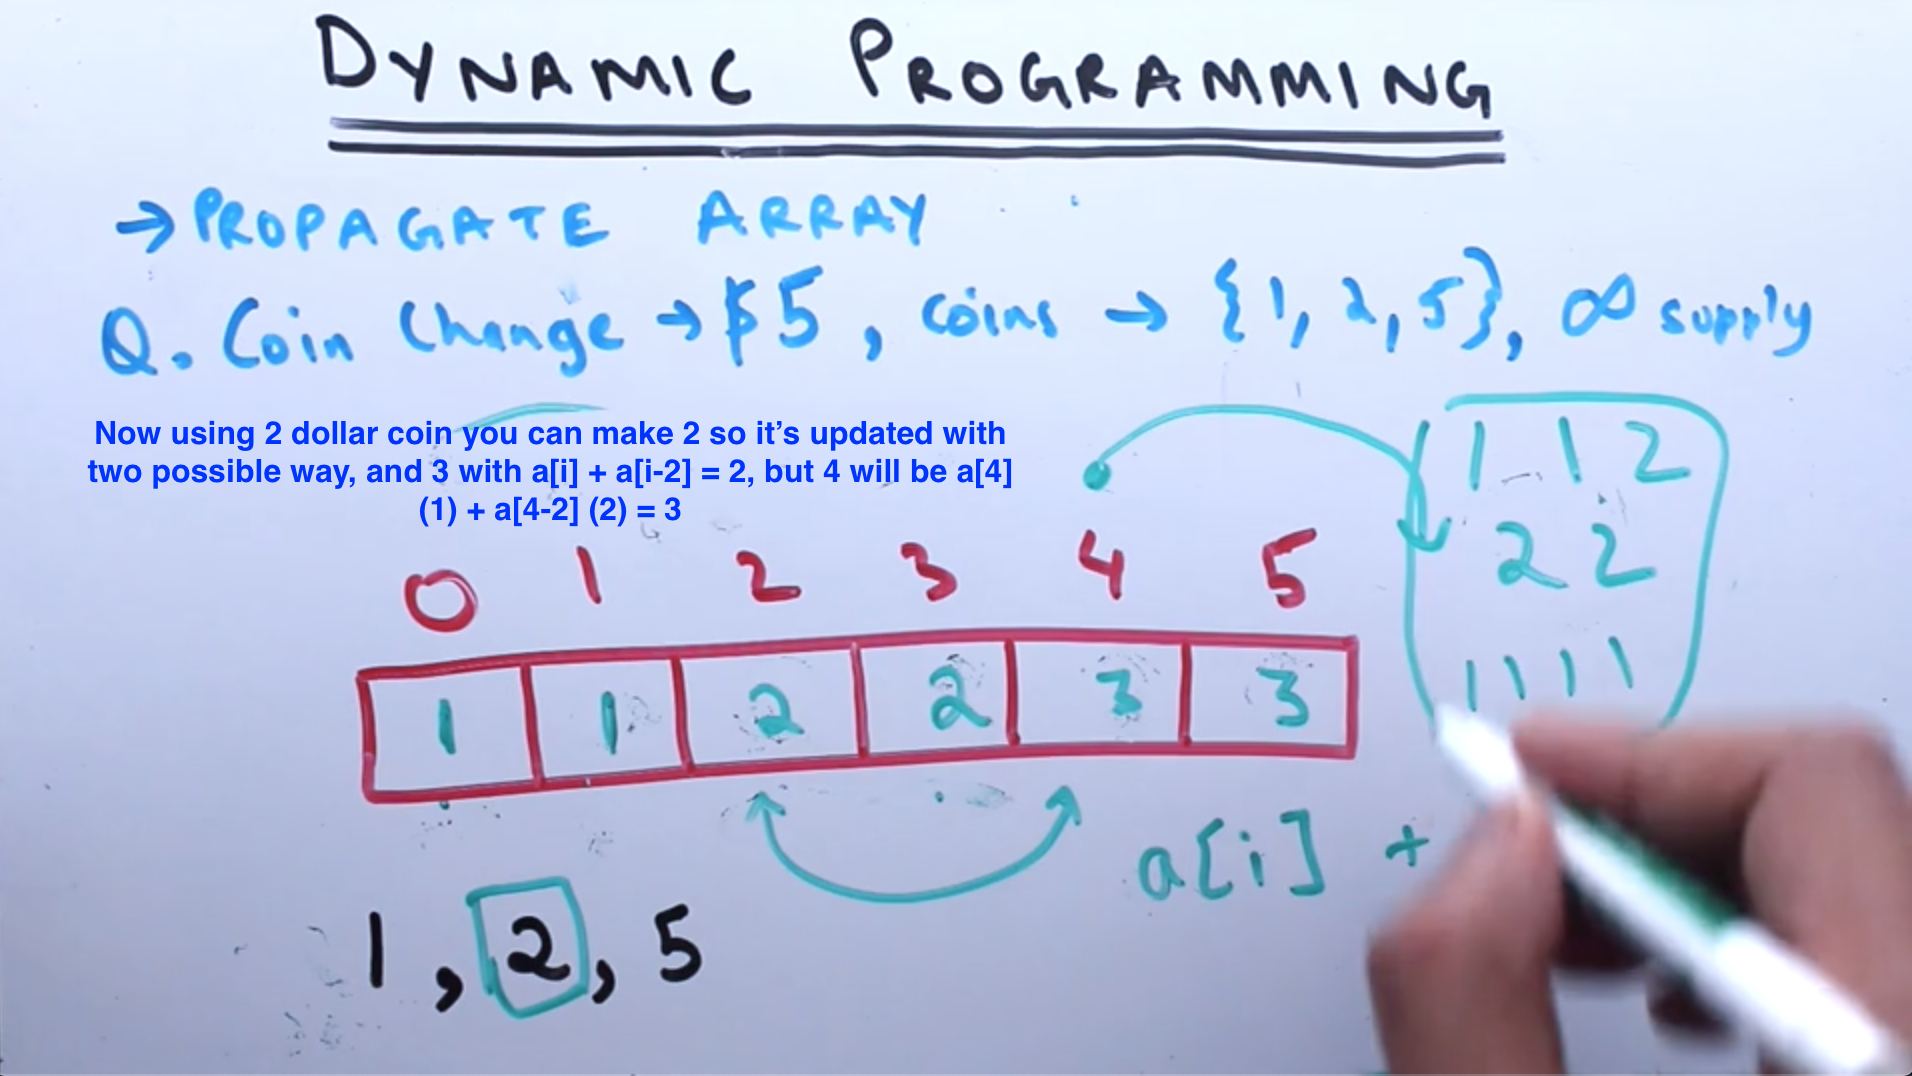 DYNAMIC PROGRAMMING
→ PROPAGATE ARRAY
Q. Coin Change → $5, coins → {1, 2, 5}, ∞ supply
Now using 2 dollar coin you can make 2 so it's updated with
two possible way, and 3 with a[i] + a[i-2] = 2, but 4 will be a[4]
(1) + a[4-2] (2) = 3
1 1 2
2 2
1 1 1 1
0 1 2 3 4 5
1 1 2 2 3 3
a[i] +
1, 2, 5